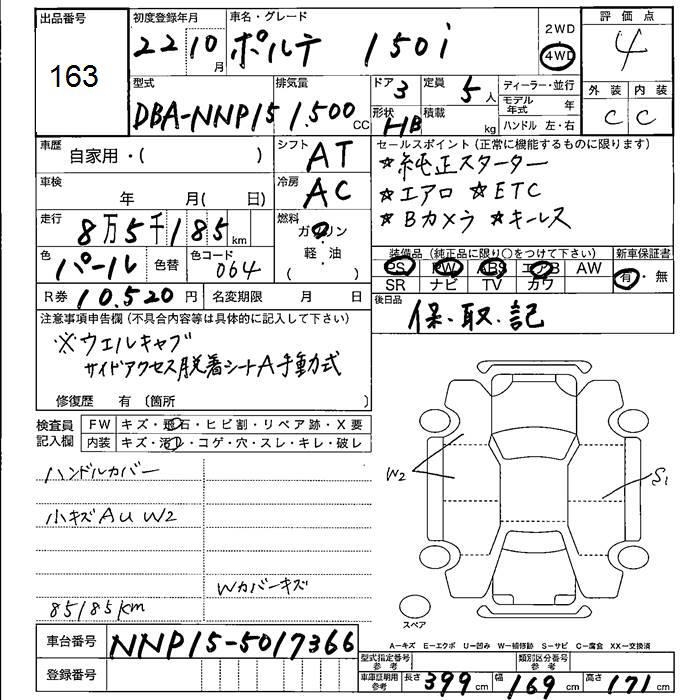 出品番号 163
初度登録年月 22 10月
車名・グレード ポルテ 150i
2WD 4WD
評価点 4
外装 内装
C C
型式 DBA-NNP15
排気量 1,500 CC
ドア 3
定員 5人
形状 HB
積載 kg
ディーラー・並行
モデル年式 年
ハンドル 左・右
車歴 自家用・( )
シフト AT
セールスポイント (正常に機能するものに限ります)
☆純正スターター
☆エアロ ☆ETC
☆Bカメラ ☆キーレス
車検 年 月( 日)
冷房 AC
走行 8万5千185km
燃料 ガソリン
軽・油
( )
色 パール 色替
色コード 064
装備品 (純正品に限り○をつけて下さい)
PS PW ABS エアB AW
SR ナビ TV カワ
新車保証書
有・無
R券 10,520円 名変期限 月 日
後日品 保.取.記
注意事項申告欄 (不具合内容等は具体的に記入して下さい)
※ウェルキャブ
サイドアクセス脱着シートA手動式
修復歴 有 〔箇所 〕
検査員記入欄
FW キズ・飛石・ヒビ割・リペア跡・X要
内装 キズ・汚レ・コゲ・穴・スレ・キレ・破レ
ハンドルカバー
小キズAU W2
Wカバーキズ
85185km
W2
S1
スペア
A-キズ E-エクボ U-凹み W-補修跡 S-サビ C-腐食 XX-交換済
車台番号 NNP15-5017366
登録番号
型式指定番号 参考
類別区分番号 参考
車庫証明用 参考 長さ 399cm 幅 169cm 高さ 171cm